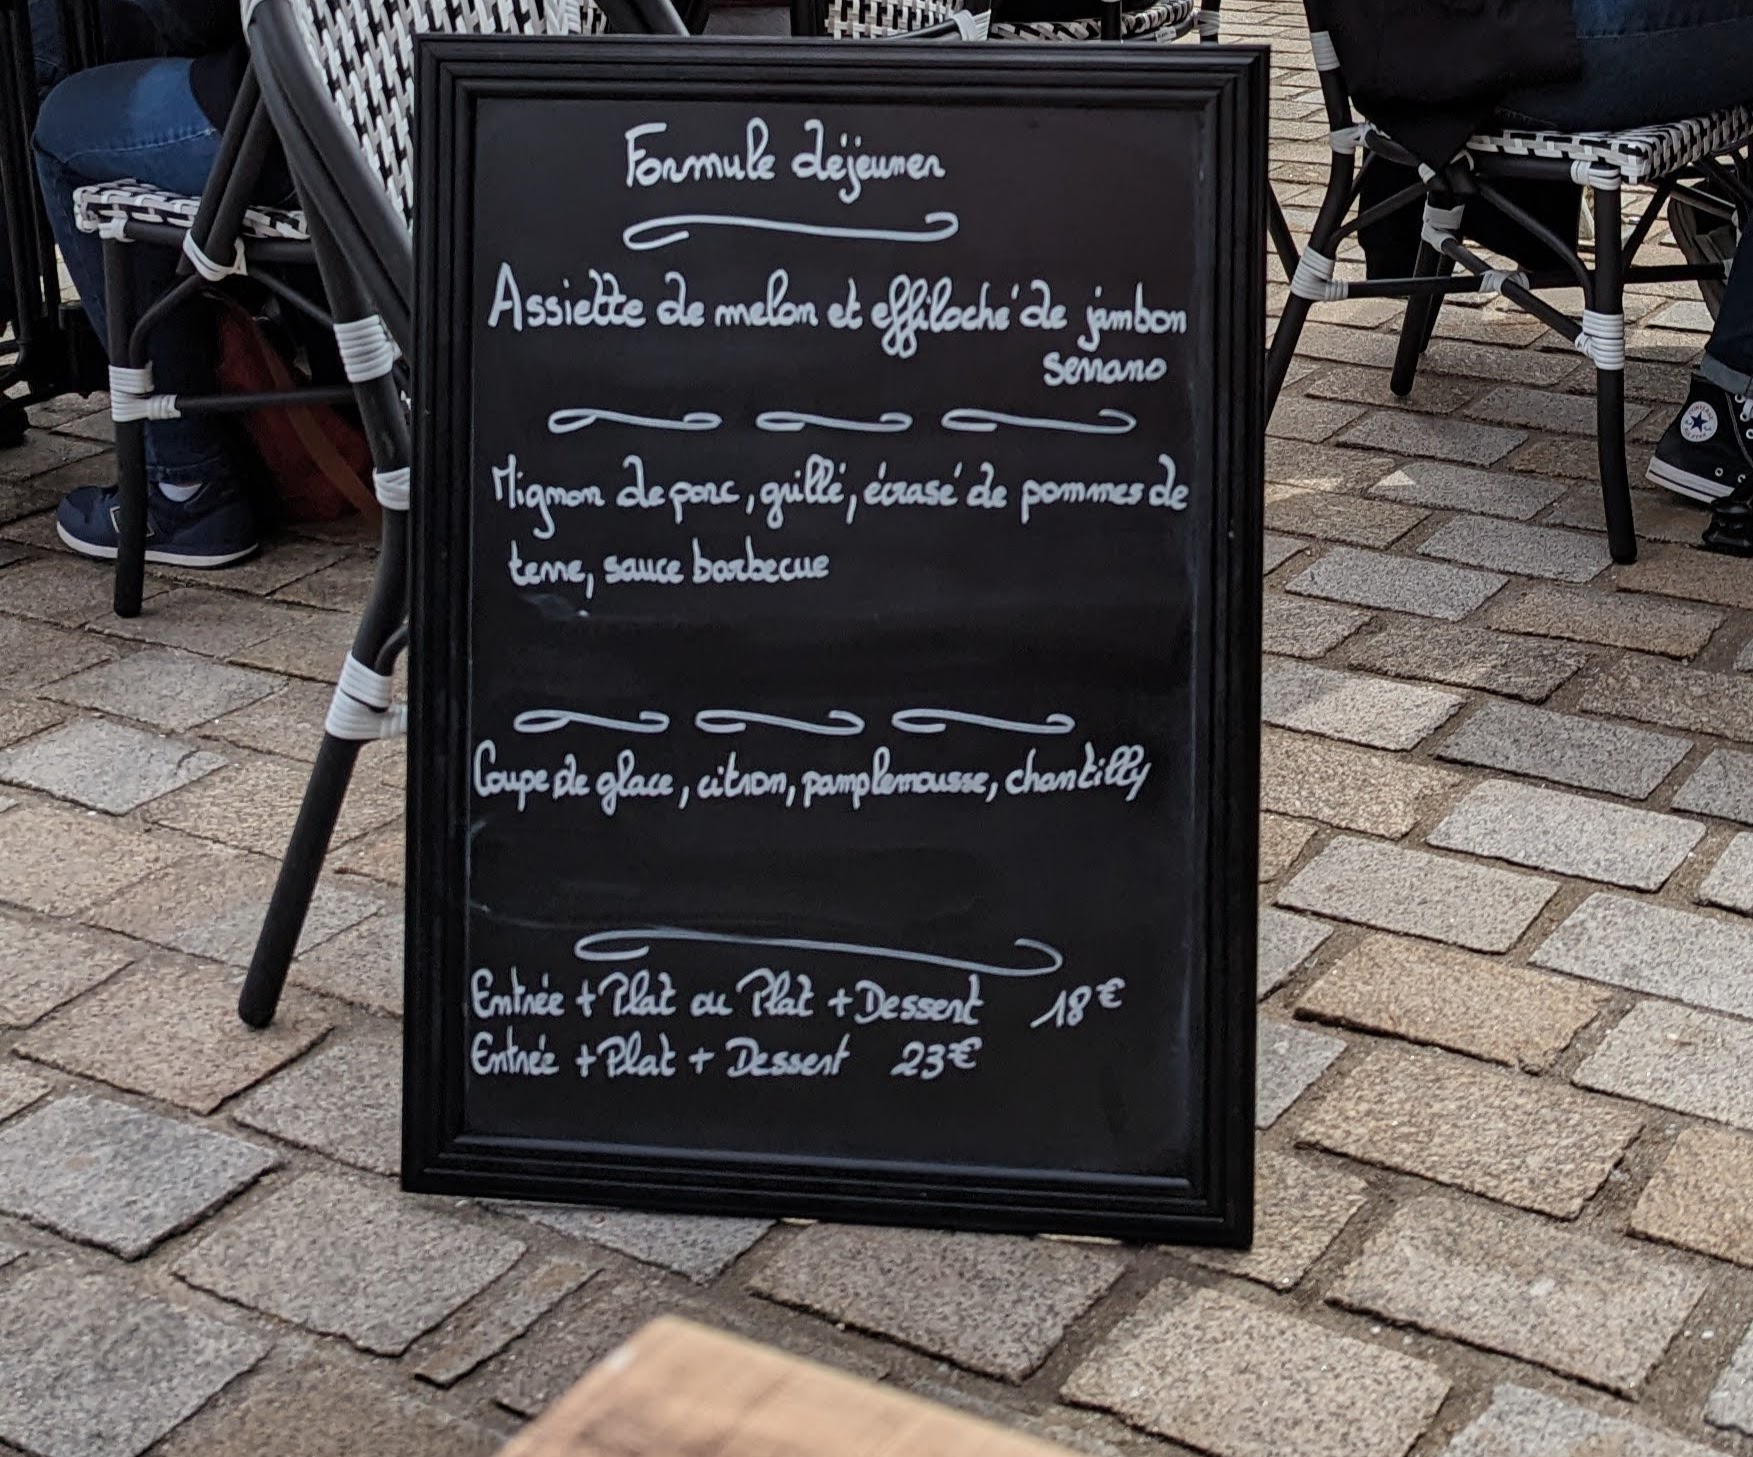 Formule déjeuner
Assiette de melon et effiloché de jambon
serrano
Mignon de porc, grillé, écrasé de pommes de
terre, sauce barbecue
Coupe de glace, citron, pamplemousse, chantilly
Entrée + Plat ou Plat + Dessert 18€
Entrée + Plat + Dessert 23€